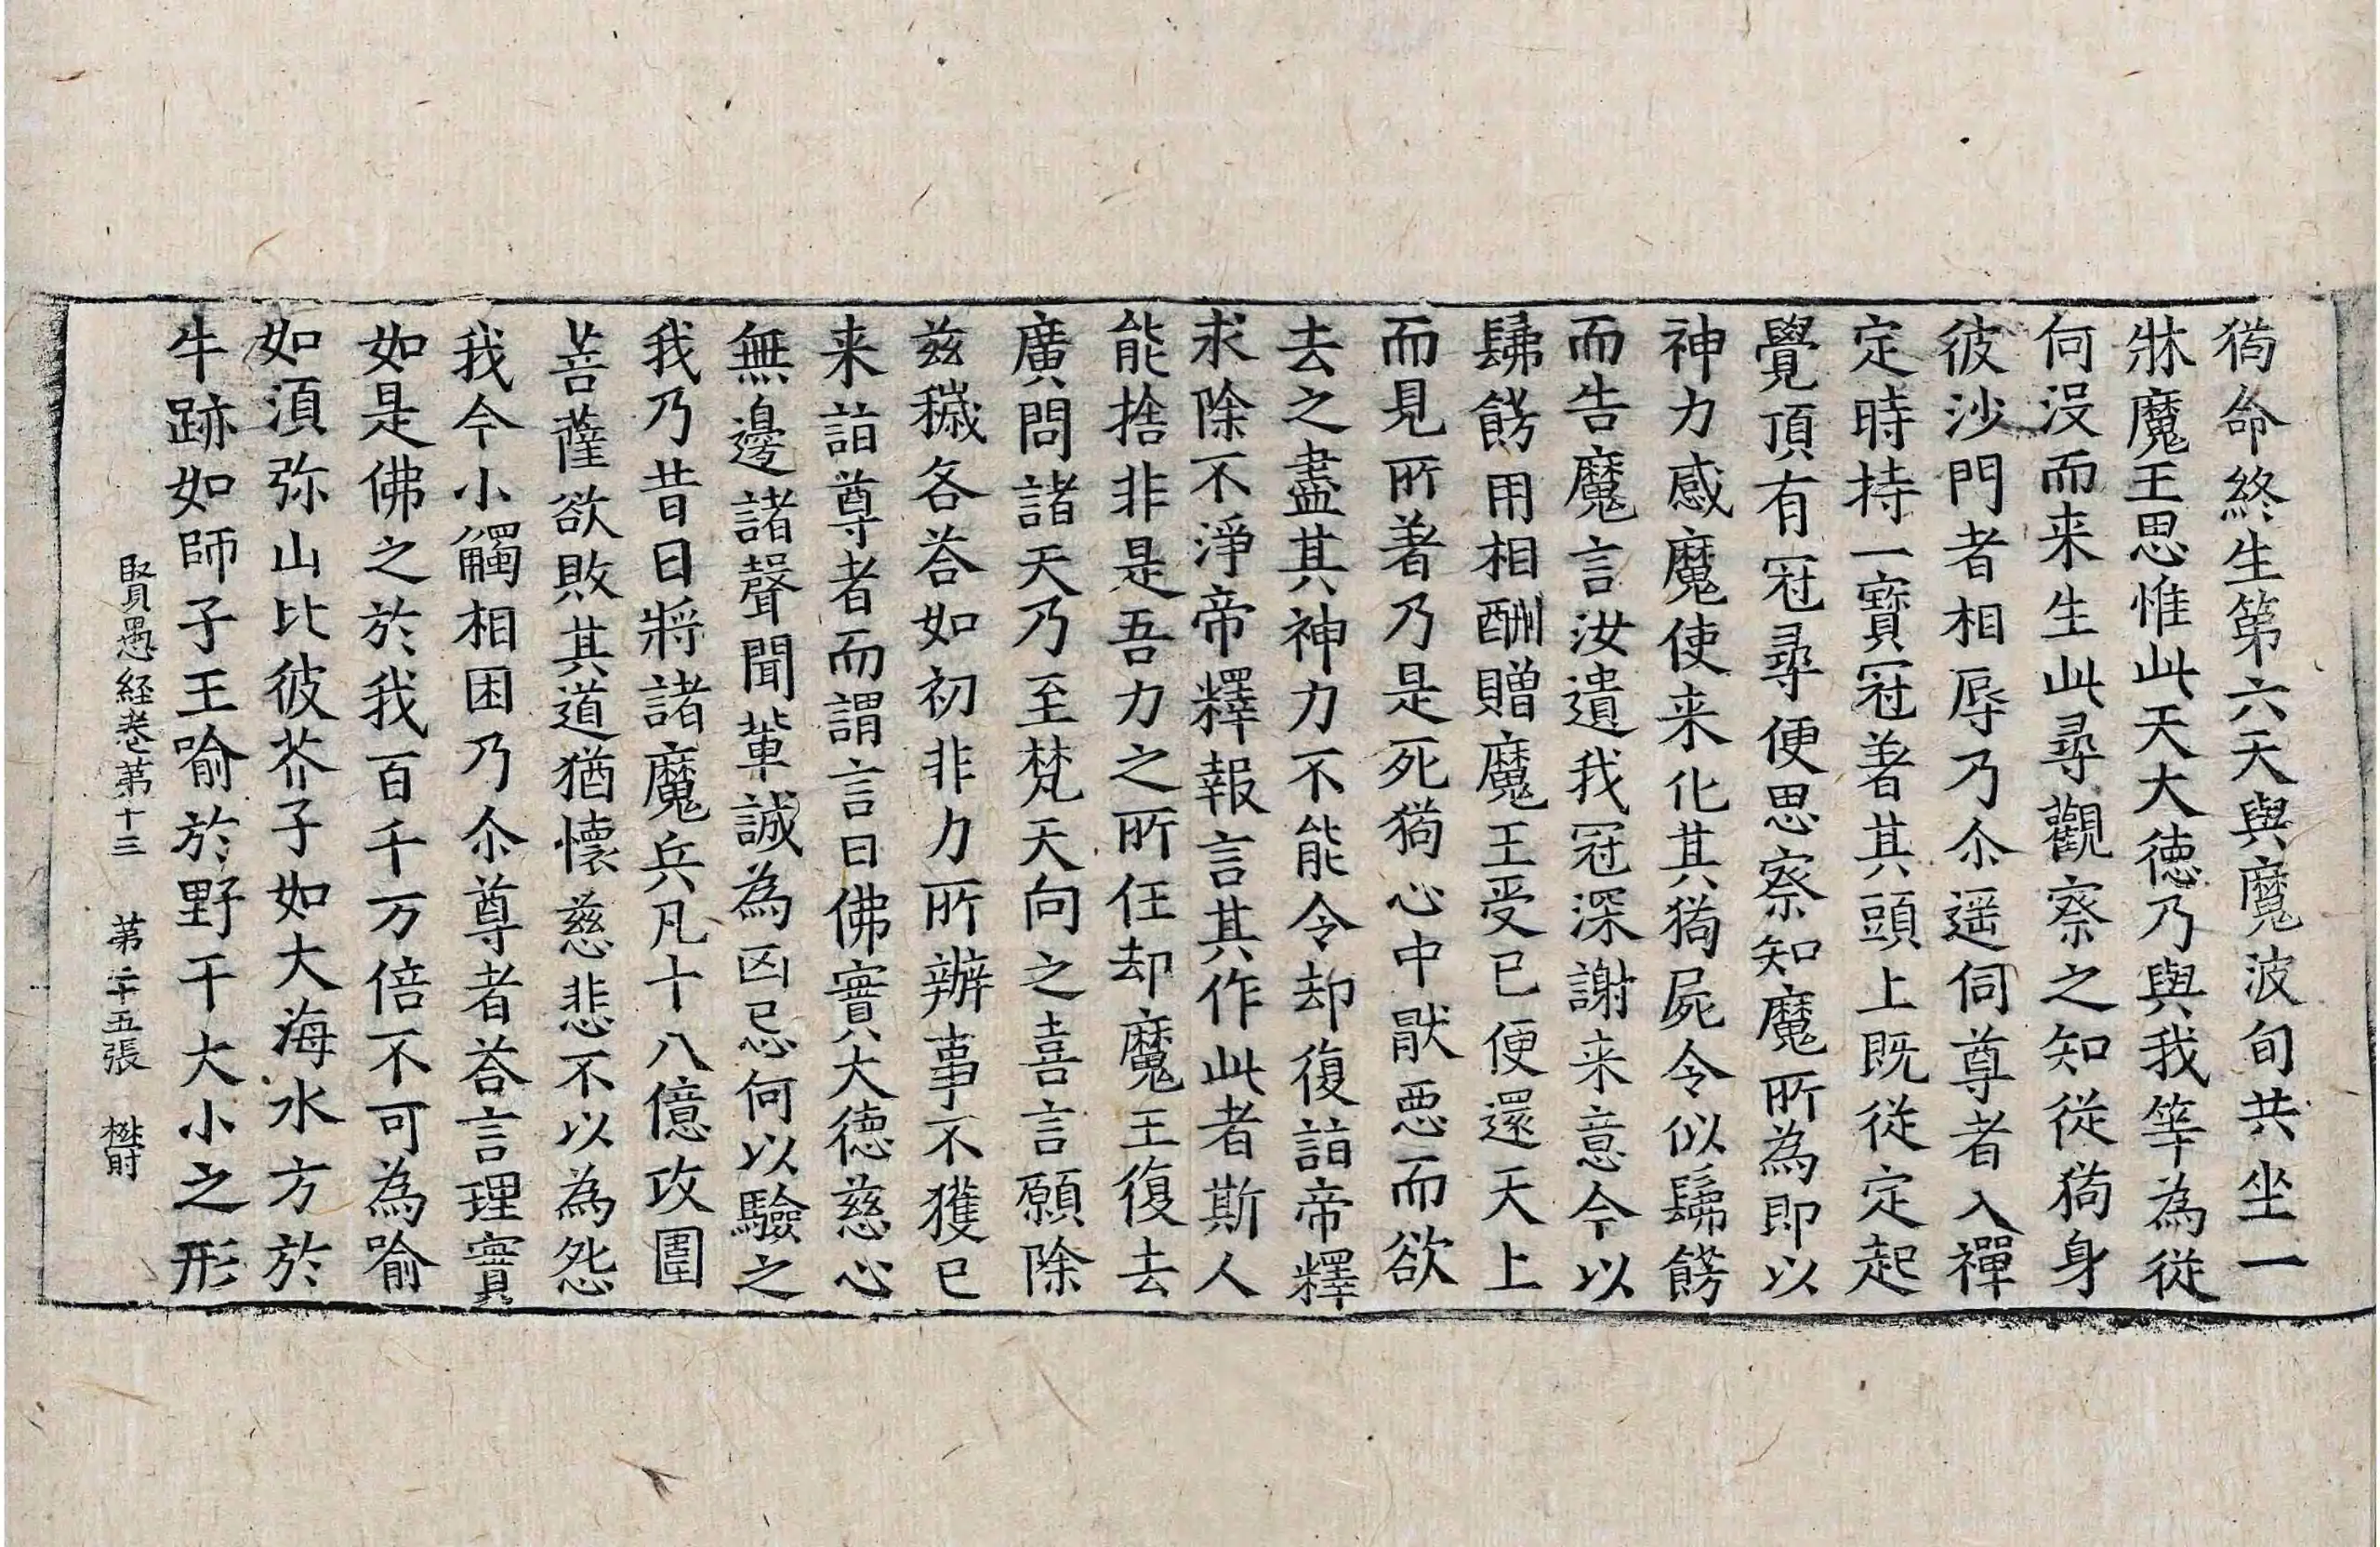 猗命終生第六天與魔波旬共坐一
牀魔王思惟此天大德乃與我等為從
何没而来生此尋觀察之知從猗身
彼沙門者相辱乃尒遥伺尊者入禪
定時持一寶冠著其頭上既從定起
覺頂有冠尋便思察知魔所為即以
神力感魔使来化其猗屍令似髴髣
而告魔言汝遺我冠深謝来意今以
髴髣用相酬贈魔王受已便還天上
而見所著乃是死猗心中猒惡而欲
去之盡其神力不能令却復詣帝釋
求除不淨帝釋報言其作此者斯人
能捨非是吾力之所任却魔王復去
廣問諸天乃至梵天向之喜言願除
兹穢各荅如初非力所辦事不獲已
来詣尊者而謂言曰佛實大德慈心
無邊諸聲聞輩誠為凶忌何以驗之
我乃昔日將諸魔兵凡十八億攻圍
菩薩欲敗其道猶懷慈悲不以為怨
我今小觸相困乃尒尊者荅言理實
如是佛之於我百千万倍不可為喻
如湏弥山比彼芥子如大海水方於
牛跡如師子王喻於野干大小之形
賢愚経卷苐十三 苐二十五張